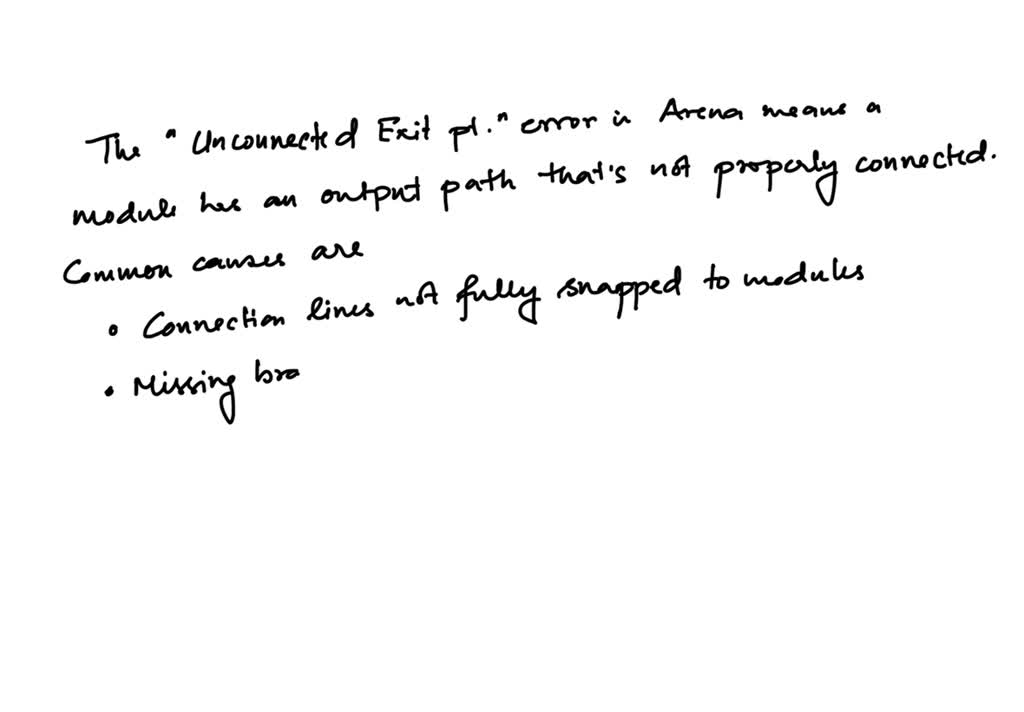 The "Unconnected Exit pt." error in Arena means a
module has an output path that's not properly connected.
Common causes are
• Connection lines not fully snapped to modules
• Missing bra